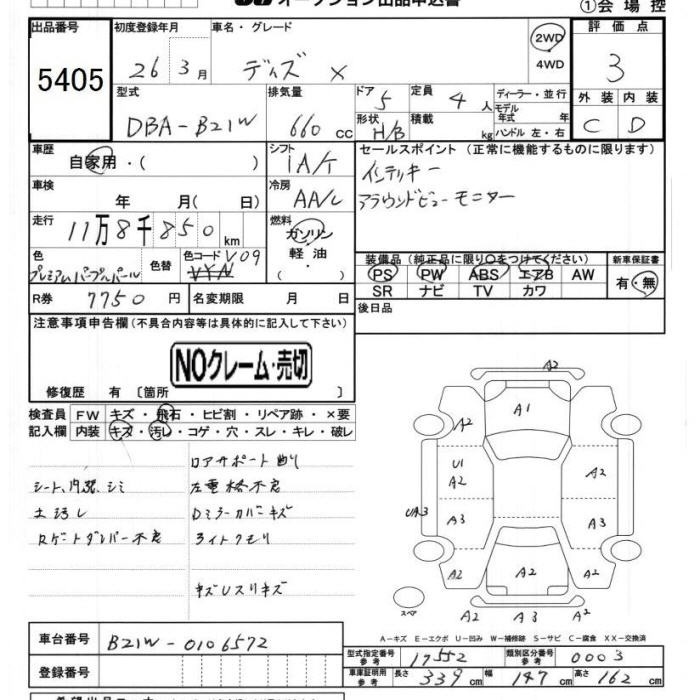 オークション出品申込書
①会場控
出品番号
5405
初度登録年月
26年3月
車名・グレード
ディズ X
2WD
4WD
評価点
3
型式
DBA-B21W
排気量
660 cc
ドア 5
形状 H/B
定員 4人
積載 kg
ディーラー・並行
モデル年式 年
ハンドル 左・右
外装 内装
C D
車歴
自家用・( )
シフト
IA/T
セールスポイント (正常に機能するものに限ります)
インテリキー
アラウンドビューモニター
車検
年 月( 日)
冷房
AA/C
走行
11万8千850km
燃料
ガソリン
軽油
色
プレミアムパープルパール
色替
色コード V09
装備品(純正品に限り○をつけてください)
PS PW ABS エアB AW
SR ナビ TV カワ
新車保証書
有・無
R券 7750円
名変期限 月 日
後日品
注意事項申告欄(不具合内容等は具体的に記入して下さい)
NOクレーム・売切
修復歴 有 〔箇所 〕
検査員 FW キズ・飛石・ヒビ割・リペア跡・×要
記入欄 内装 キズ・汚レ・コゲ・穴・スレ・キレ・破レ
ロアサポート曲り
シート、内張、シミ
土汚レ
Rゲートダンパー不良
Dミラーカバーキズ
ライトクモリ
キズUスリキズ
A2
A1
A2
U1
A2
A2
UA3
A3
A3
A2
A2
A2
スペア
A2
A3
A2
A-キズ E-エクボ U-凹み W-補修跡 S-サビ C-腐食 XX-交換済
車台番号
B21W-0106572
登録番号
型式指定番号 参考 17552
類別区分番号 参考 0003
車庫証明用 参考
長さ 339cm
幅 147cm
高さ 162cm